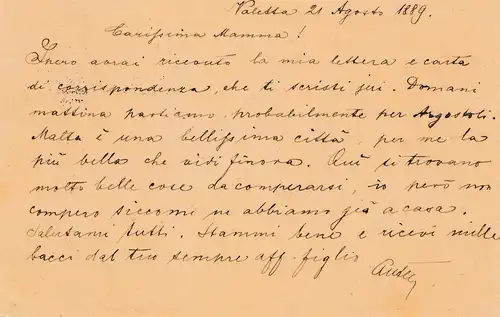 Valetta 21 Agosto 1889.
Carissima Mamma!
Spero avrai ricevuto la mia lettera e carta
di corrispondenza, che ti scrissi jeri. Domani
mattina partiamo, probabilmente per Argostoli.
Malta è una bellissima città, per me la
più bella che vidi finora. Quì si trovano
molto belle cose da comperarsi, io però non
compero siccome ne abbiamo già a casa.
Salutami tutti. Stammi bene e ricevi mille
bacci dal tuo sempre aff. figlio